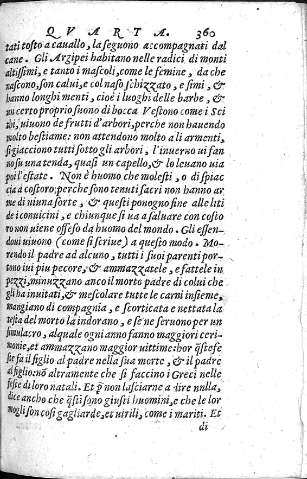 QVARTA. 360
tati tosto a cauallo, la seguono accompagnati dal
cane. Gli Argipei habitano nelle radici di monti
altissimi, e tanto i mascoli, come le femine, da che
nascono, son calui, e col naso schizzato, e simi, &
hanno longhi menti, cioè i luoghi delle barbe, &
un certo proprio suono di bocca Vestono come i Sci
thi, uiuono de frutti d'arbori, perche non hauendo
molto bestiame: non attendono molto a li armenti,
si giacciono tutti sotto gli arbori, l'inuerno ui fan
no su una tenda, quasi un capello, & lo leuano uia
poi l'estate. Non è huomo che molesti, o di spiac
cia a costoro: perche sono tenuti sacri non hanno ar
me di niuna sorte, & questi ponogno fine alle liti
de i conuicini, e chiunque si ua a saluare con costo
ro non uiene offeso da huomo del mondo. Gli essen
doni uiuono (come si scriue) a questo modo. Mo-
rendo il padre ad alcuno, tutti i suoi parenti por-
tono iui piu pecore, & ammazzatele, e fattele in
pezzi, minuzzano anco il morto padre di colui che
gli ha inuitati, & mescolare tutte le carni insieme,
mangiano di compagnia, e scorticata e nettata la
testa del morto la indorano, e se ne seruono per un
simulacro, al quale ogni anno fanno maggiori ceri-
monie, et ammazzano maggior uittime: hor q̃ste fe
ste fa il figlio al padre nella sua morte, & il padre
al figlio: nõ altramente che si faccino i Greci nelle
feste di loro natali. Et p̃ non lasciarne a dire nulla,
dice ancho che q̃sti sono giusti huomini, e che le lor
mogli son cosi gagliarde, et uirili, come i mariti. Et
di